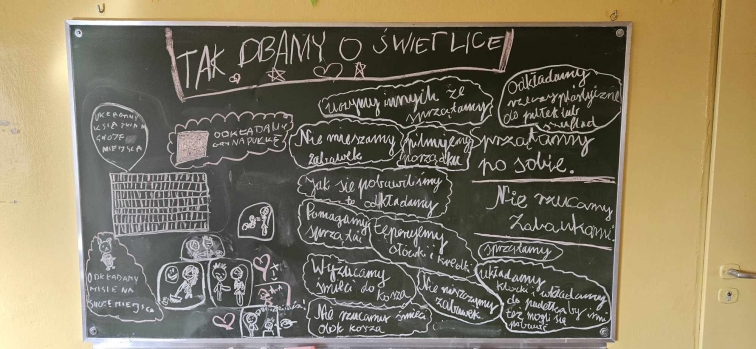 TAK DBAMY O ŚWIETLICE
UKŁADAMY
KSIĄŻKI NA
SWOJE
MIEJSCA
ODKŁADAMY
GRY NA PÓŁKĘ
ODKŁADAMY
MISIE NA
SWOJE MIEJSCA
uczymy innych że
sprzątamy
Nie mieszamy
zabawek
pilnujemy
porządku
Jak się pobawiliśmy
to odkładamy
Pomagamy
sprzątać
temperujemy
ołówki i kredki
Wyrzucamy
śmieci do kosza
Nie niszczymy
zabawek
Nie rzucamy śmieci
obok kosza
Odkładamy
rzeczy plastyczne
do pułek lub
szuflad
sprzątamy
po sobie.
Nie rzucamy
Zabawkami
sprzątamy
układamy
klocki i wkładamy
do pudełka by inni
też mogli się
pobawić